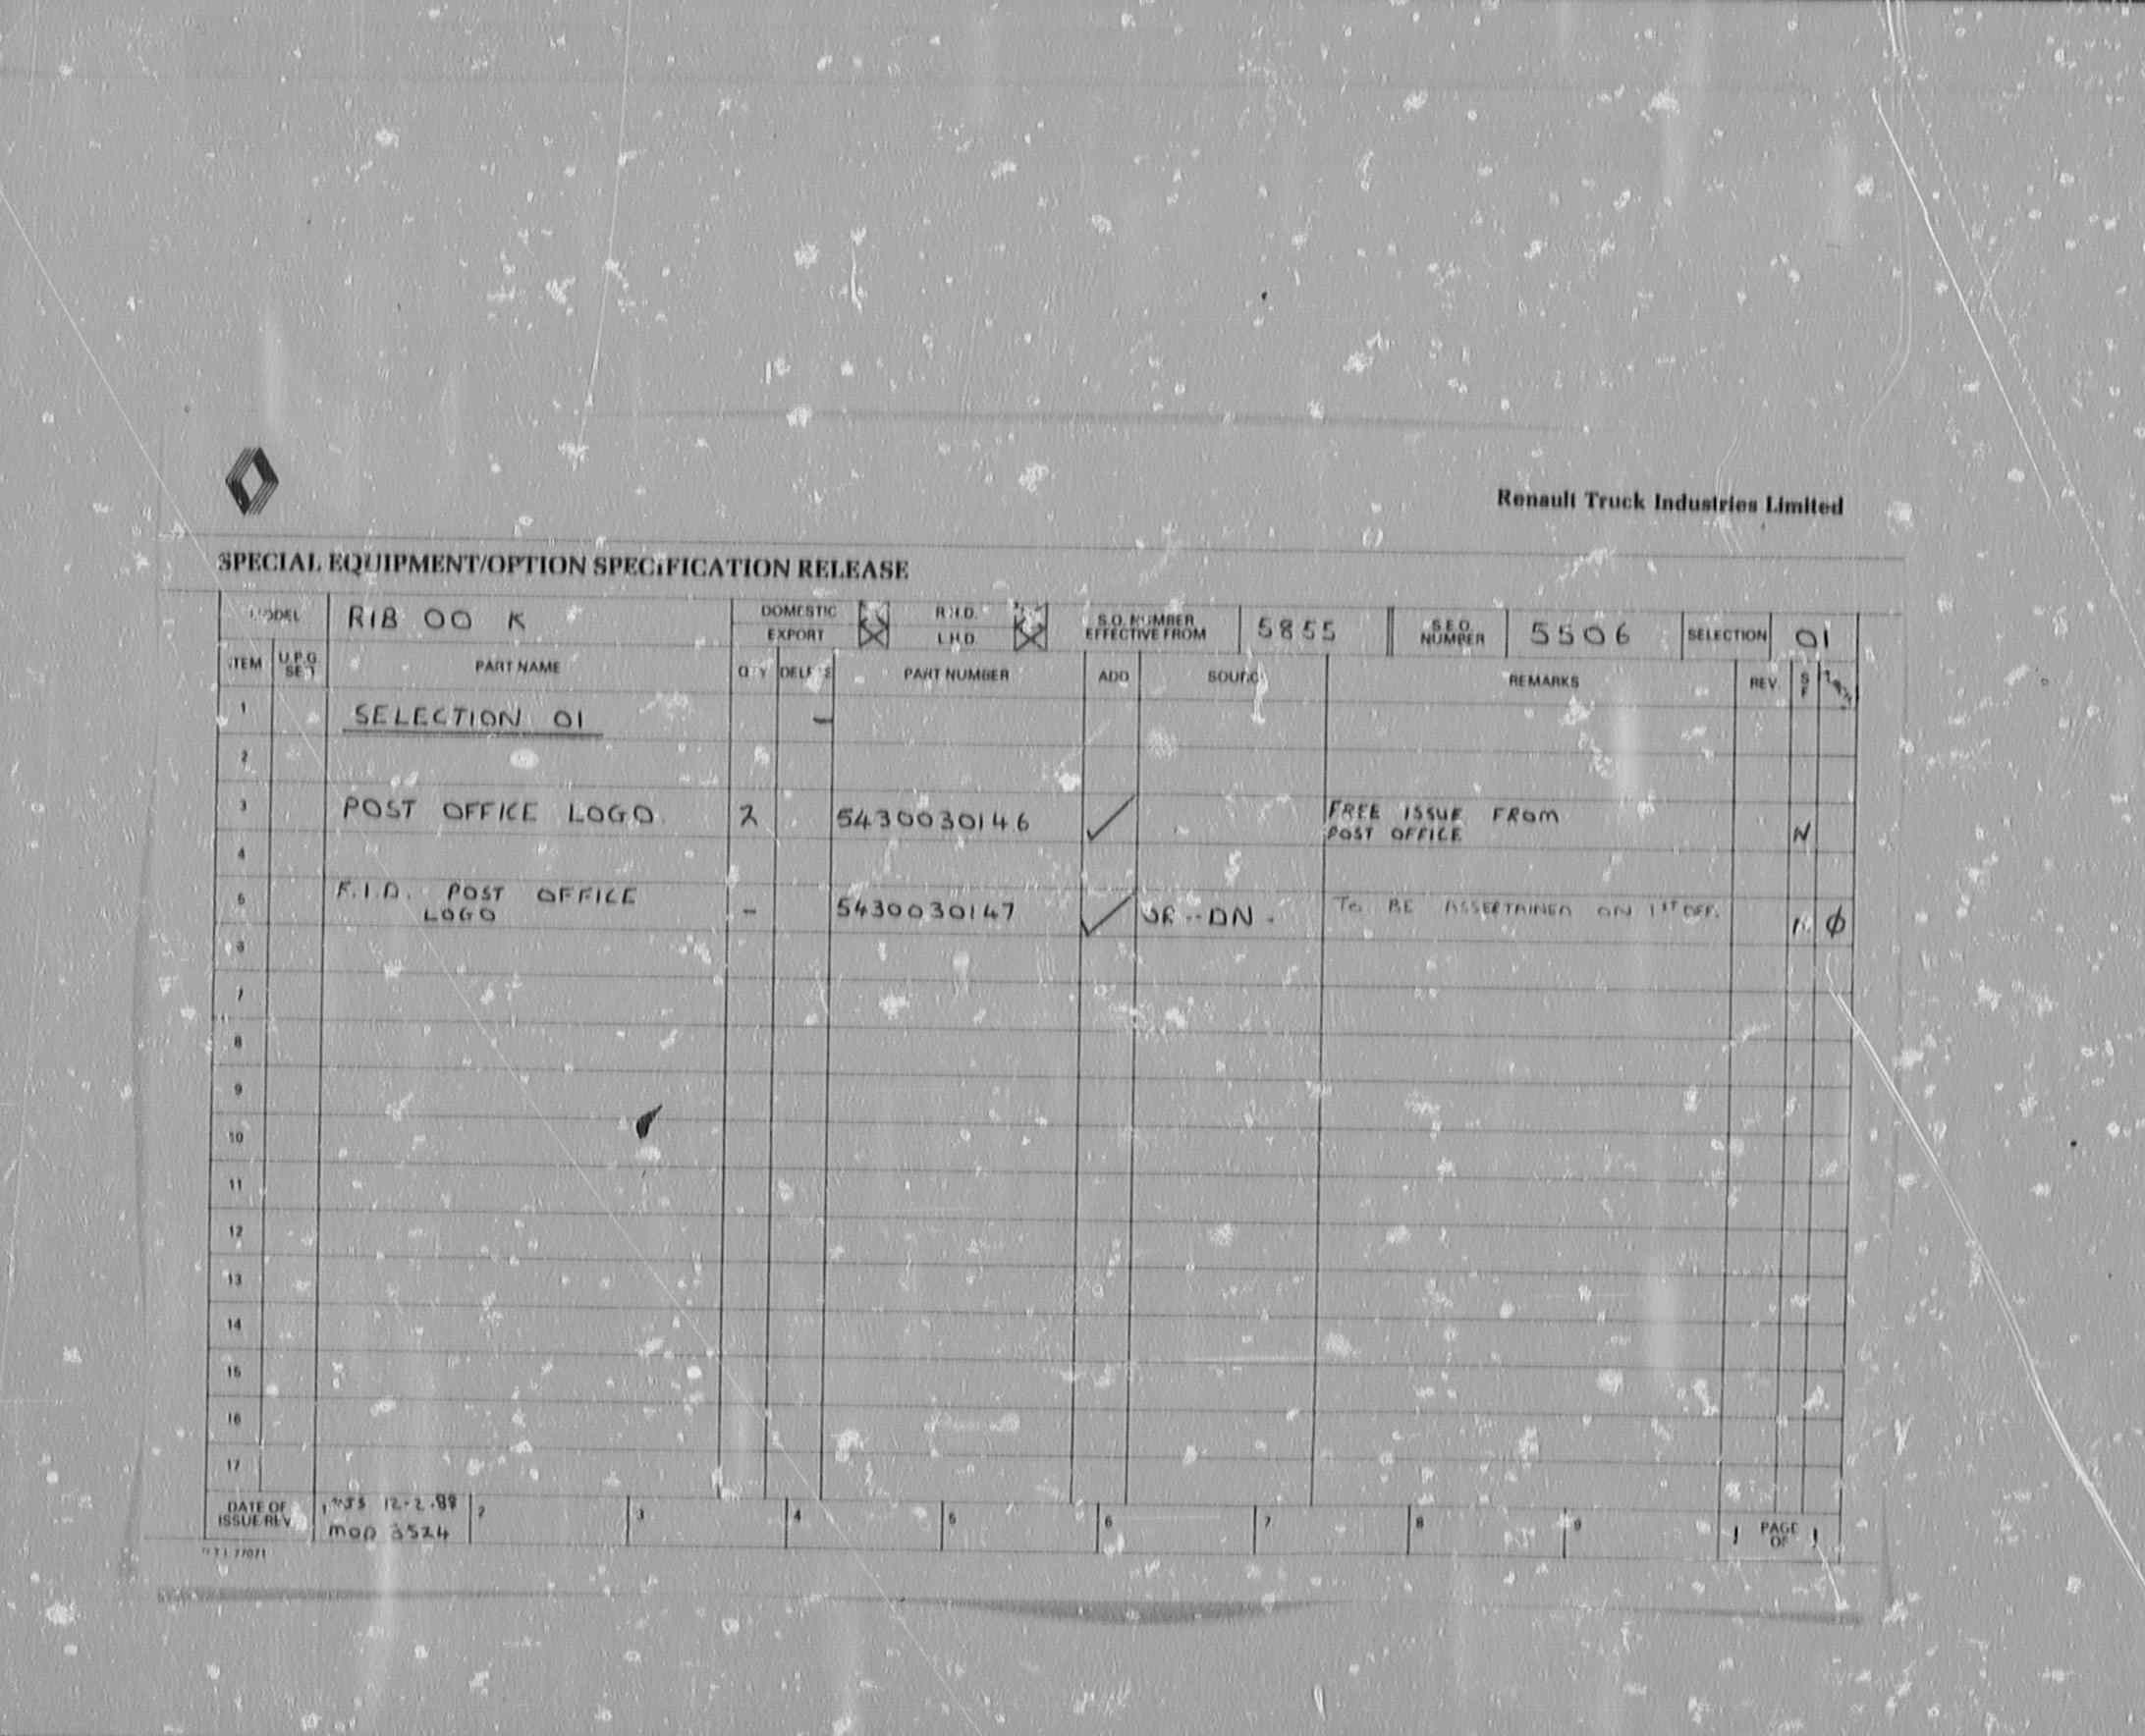 Renault Truck Industries Limited
SPECIAL EQUIPMENT/OPTION SPECIFICATION RELEASE
MODEL R1B 00 K DOMESTIC R.H.D. S.O. NUMBER EFFECTIVE FROM 5855 S.E.O. NUMBER 5506 SELECTION 01
EXPORT L.H.D.
ITEM U.P.G. SET PART NAME QTY PART NUMBER ADD SOURCE REMARKS REV S F
1 SELECTION 01 -
2
3 POST OFFICE LOGO 2 5430030146 ✓ FREE ISSUE FROM
POST OFFICE N
4
5 F.I.D. POST OFFICE
LOGO - 5430030147 ✓ TO BE ASSERTAINED ON 1ST OFF. φ
6
7
8
9
10
11
12
13
14
15
16
17
DATE OF ISSUE/REV 1 12.2.88 2 3 4 5 6 7 8 9 1 PAGE OF 1
MOD 3524